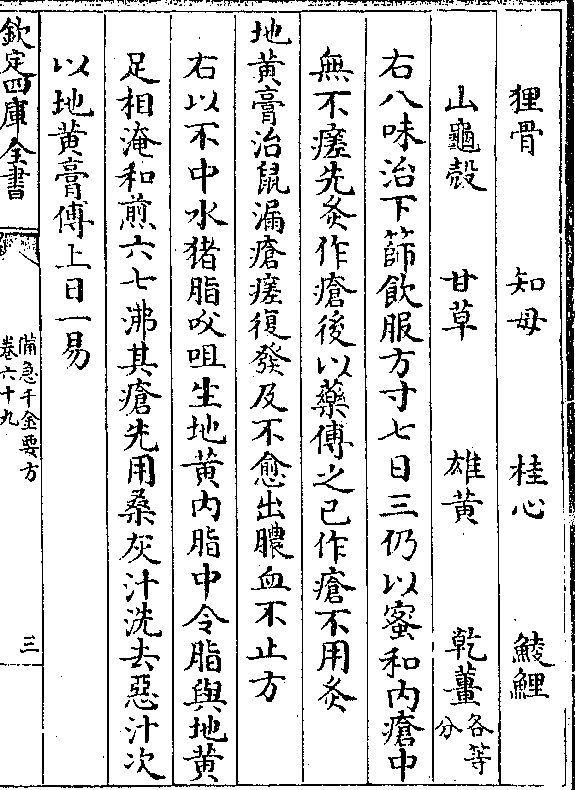 狸骨 知母 桂心 鯪鯉
山龜殼 甘草 雄黃 乾薑各等分
右八味治下篩飲服方寸七日三仍以蜜和内瘡中
無不瘥先灸作瘡後以藥傅之已作瘡不用灸
地黃膏治鼠漏瘡瘥復發及不愈出膿血不止方
右以不中水猪脂㕮咀生地黃内脂中令脂與地黃
足相淹和煎六七沸其瘡先用桑灰汁洗去惡汁次
以地黃膏傅上日一易
欽定四庫全書
備急千金要方
卷六十九
三